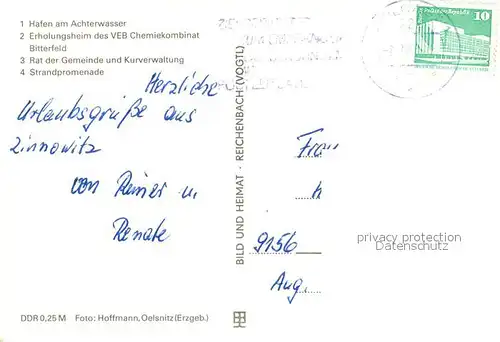 1 Hafen am Achterwasser
2 Erholungsheim des VEB Chemiekombinat
Bitterfeld
3 Rat der Gemeinde und Kurverwaltung
4 Strandpromenade
Herzliche
Urlaubsgrüße aus
Zinnowitz
von Reiner u.
Renate
DDR 0,25 M Foto: Hoffmann, Oelsnitz (Erzgeb.)
BILD UND HEIMAT · REICHENBACH (VOGTL)
10
Frau
h
9156
Aug.
privacy protection
Datenschutz